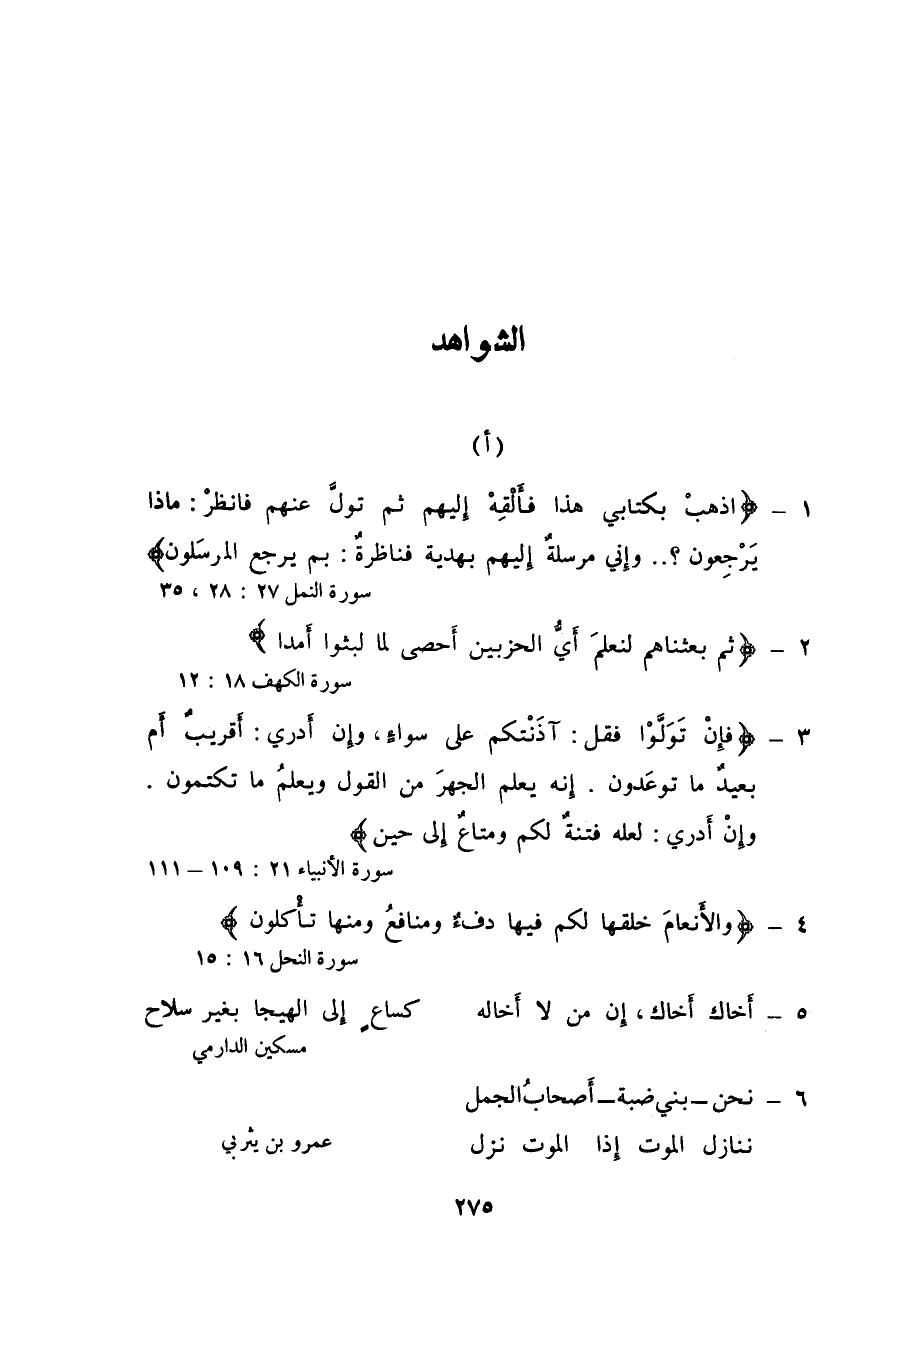 الشواهد
(أ)
١ – ﴿اذهبْ بكتابي هذا فأَلْقِهْ إليهم ثم تولَّ عنهم فانظرْ : ماذا
يَرْجِعون ؟.. وإني مرسلةٌ إليهم بهدية فناظرةٌ : بم يرجع المرسَلون﴾
سورة النمل ٢٧ : ٢٨ ، ٣٥
٢ – ﴿ثم بعثناهم لنعلمَ أَيُّ الحزبين أَحصى لما لبثوا أَمدا ﴾
سورة الكهف ١٨ : ١٢
٣ – ﴿فإِنْ تَوَلَّوْا فقل : آذَنْتكم على سواءٍ ، وإِن أَدري : أَقريبٌ أَم
بعيدٌ ما توعَدون . إِنه يعلم الجهرَ من القول ويعلمُ ما تكتمون .
وإِنْ أَدري : لعله فتنةٌ لكم ومتاعٌ إِلى حين﴾
سورة الأنبياء ٢١ : ١٠٩ – ١١١
٤ – ﴿والأَنعامَ خلقها لكم فيها دفءٌ ومنافعُ ومنها تأْكلون ﴾
سورة النحل ١٦ : ١٥
٥ – أَخاك أَخاك ، إِن من لا أَخاله كساعٍ إِلى الهيجا بغير سلاح
مسكين الدارمي
٦ – نحن – بني ضبة – أَصحابُ الجمل
ننازل الموت إِذا الموت نزل عمرو بن يثربي
٢٧٥